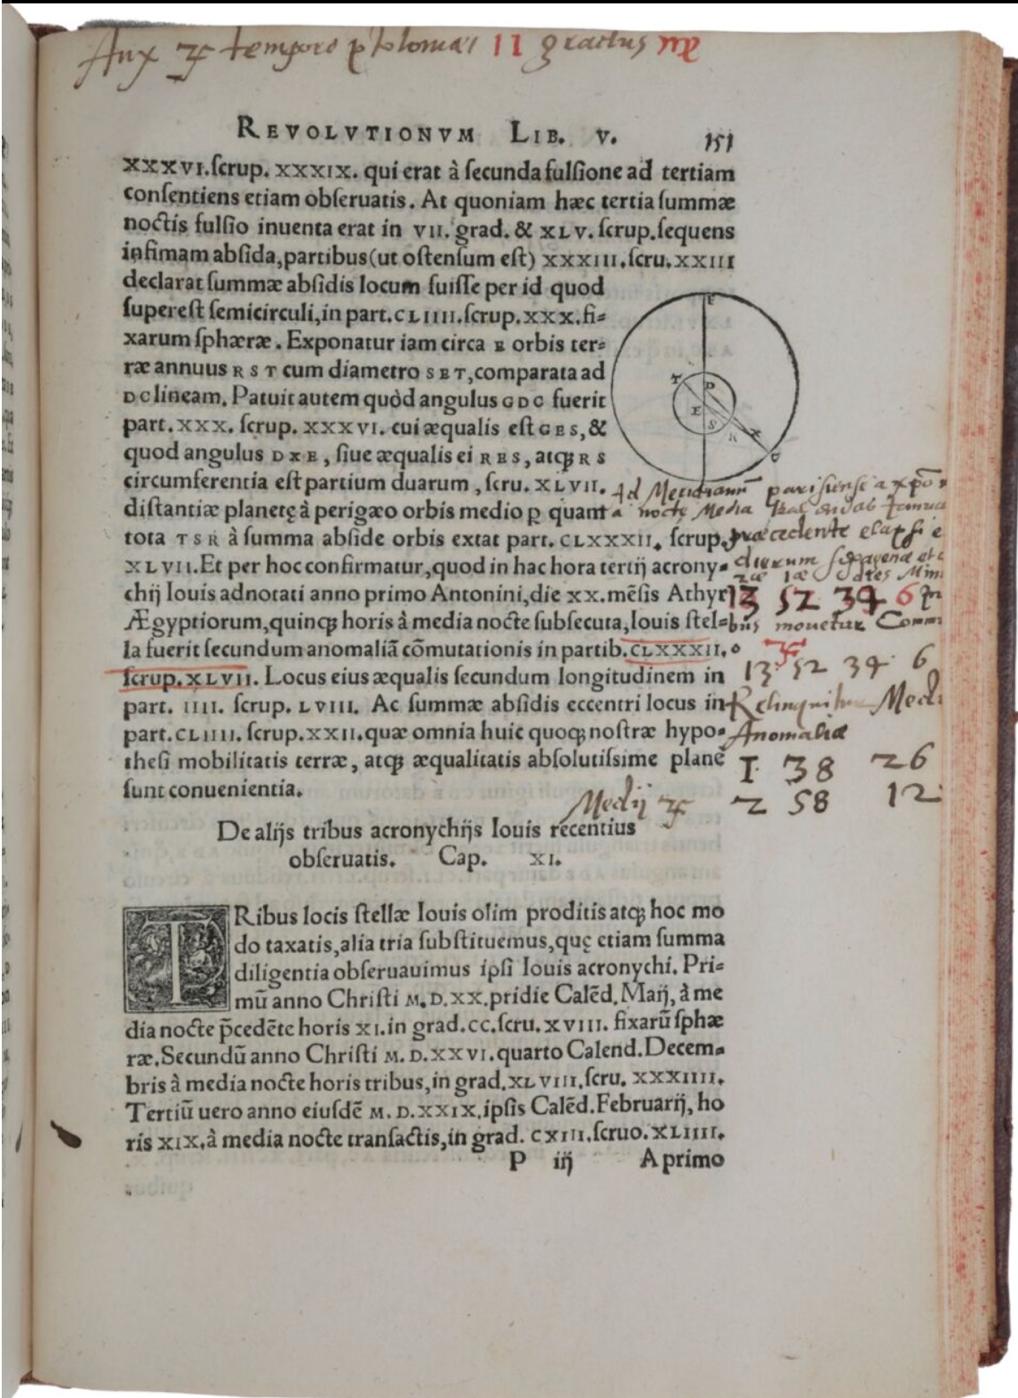 Aux ♃ tempore ptolomæi 11 gradus ♍
REVOLVTIONVM LIB. V. 151
XXXVI.ſcrup. XXXIX. qui erat à ſecunda fulſione ad tertiam
conſentiens etiam obſeruatis. At quoniam hæc tertia ſummæ
noctis fulſio inuenta erat in VII. grad. & XLV. ſcrup.ſequens
infimam abſida,partibus(ut oſtenſum eſt) XXXIII.ſcru.XXIII
declarat ſummæ abſidis locum fuiſſe per id quod
ſupereſt ſemicirculi,in part.CLIIII.ſcrup.XXX.fi⸗
xarum ſphæræ. Exponatur iam circa E orbis ter⸗
ræ annuus R S T cum diametro S E T,comparata ad
D C lineam. Patuit autem quòd angulus G D C fuerit
part.XXX. ſcrup. XXXVI. cui æqualis eſt G E S, &
quod angulus D X E, ſiue æqualis ei R E S, atqꝫ R S
circumferentia eſt partium duarum, ſcru. XLVII.
diſtantiæ planetę à perigæo orbis medio ꝑ quam
tota T S R à ſumma abſide orbis extat part. CLXXXII. ſcrup.
XLVII.Et per hoc confirmatur,quod in hac hora tertij acrony⸗
chij Iouis adnotati anno primo Antonini,die XX.mēſis Athyr
Ægyptiorum,quinqꝫ horis à media nocte ſubſecuta,Iouis ſtel⸗
la fuerit ſecundum anomaliã cōmutationis in partib.CLXXXII.
ſcrup.XLVII. Locus eius æqualis ſecundum longitudinem in
part. IIII. ſcrup. LVIII. Ac ſummæ abſidis eccentri locus in
part.CLIIII.ſcrup.XXII.quæ omnia huic quoqꝫ noſtræ hypo⸗
theſi mobilitatis terræ, atqꝫ æqualitatis abſolutiſsime planē
ſunt conuenientia.
E
T D
E S R X
G
Ad Meridianũ parisiensẽ a xpõ
nocte Media
præcedente elapsi
dierum
13 52 34 6
bus mouetur Comm
♃
13 52 34 6
Relinquitur Medi
Anomaliæ
1 38 26
Medij ♃ 2 58 12
De alijs tribus acronychijs Iouis recentius
obſeruatis. Cap. XI.
TRibus locis ſtellæ Iouis olim proditis atqꝫ hoc mo
do taxatis,alia tria ſubſtituemus,quę etiam ſumma
diligentia obſeruauimus ipſi Iouis acronychi. Pri⸗
mũ anno Chriſti M.D.XX.pridie Calēd.Maij, à me
dia nocte p̄cedēte horis XI.in grad.CC.ſcru.XVIII. fixarũ ſphæ
ræ.Secundũ anno Chriſti M.D.XXVI.quarto Calend.Decem⸗
bris à media nocte horis tribus,in grad.XLVIII.ſcru. XXXIIII.
Tertiũ uero anno eiuſdē M.D.XXIX.ipſis Calēd.Februarij, ho
ris XIX.à media nocte tranſactis,in grad. CXIII.ſcruo.XLIIII.
P iij A primo